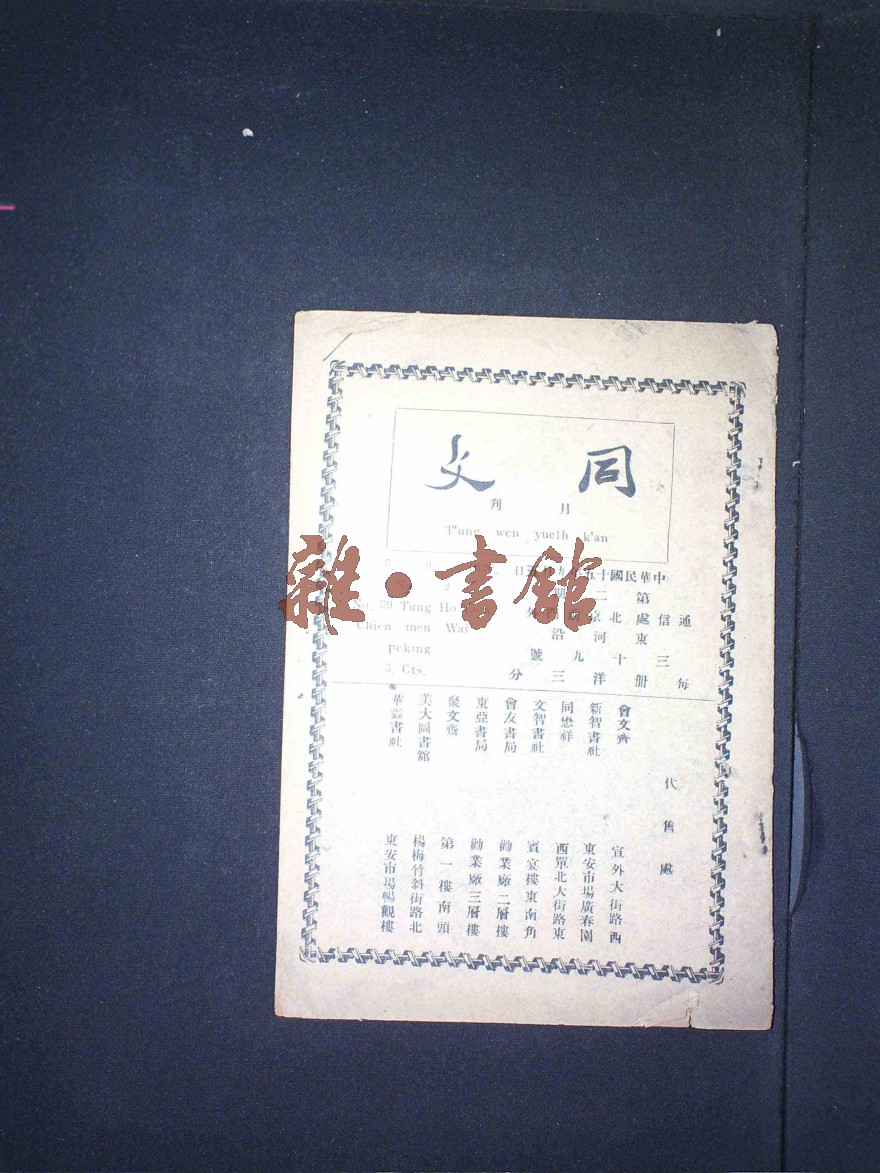 同文
月刊
T'ung wen yuelh k'an
中華民國十五年九月五日
第二期
通信處北京前門外
東河沿
三十九號
每冊洋三分
No. 39 Tung Ho
Chien men Wai
peking
3 Cts.
代售處
會文齊 宣外大街路西
新智書社 東安市場廣春園
同懋祥 西單北大街路東
文智書社 賓宴樓東南角
會友書局 勸業廠二層樓
東亞書局 勸業廠三層樓
聚文齋 第一樓南頭
美大圖書館 楊梅竹斜街路北
華盛書社 東安市場暢觀樓
雜·書館